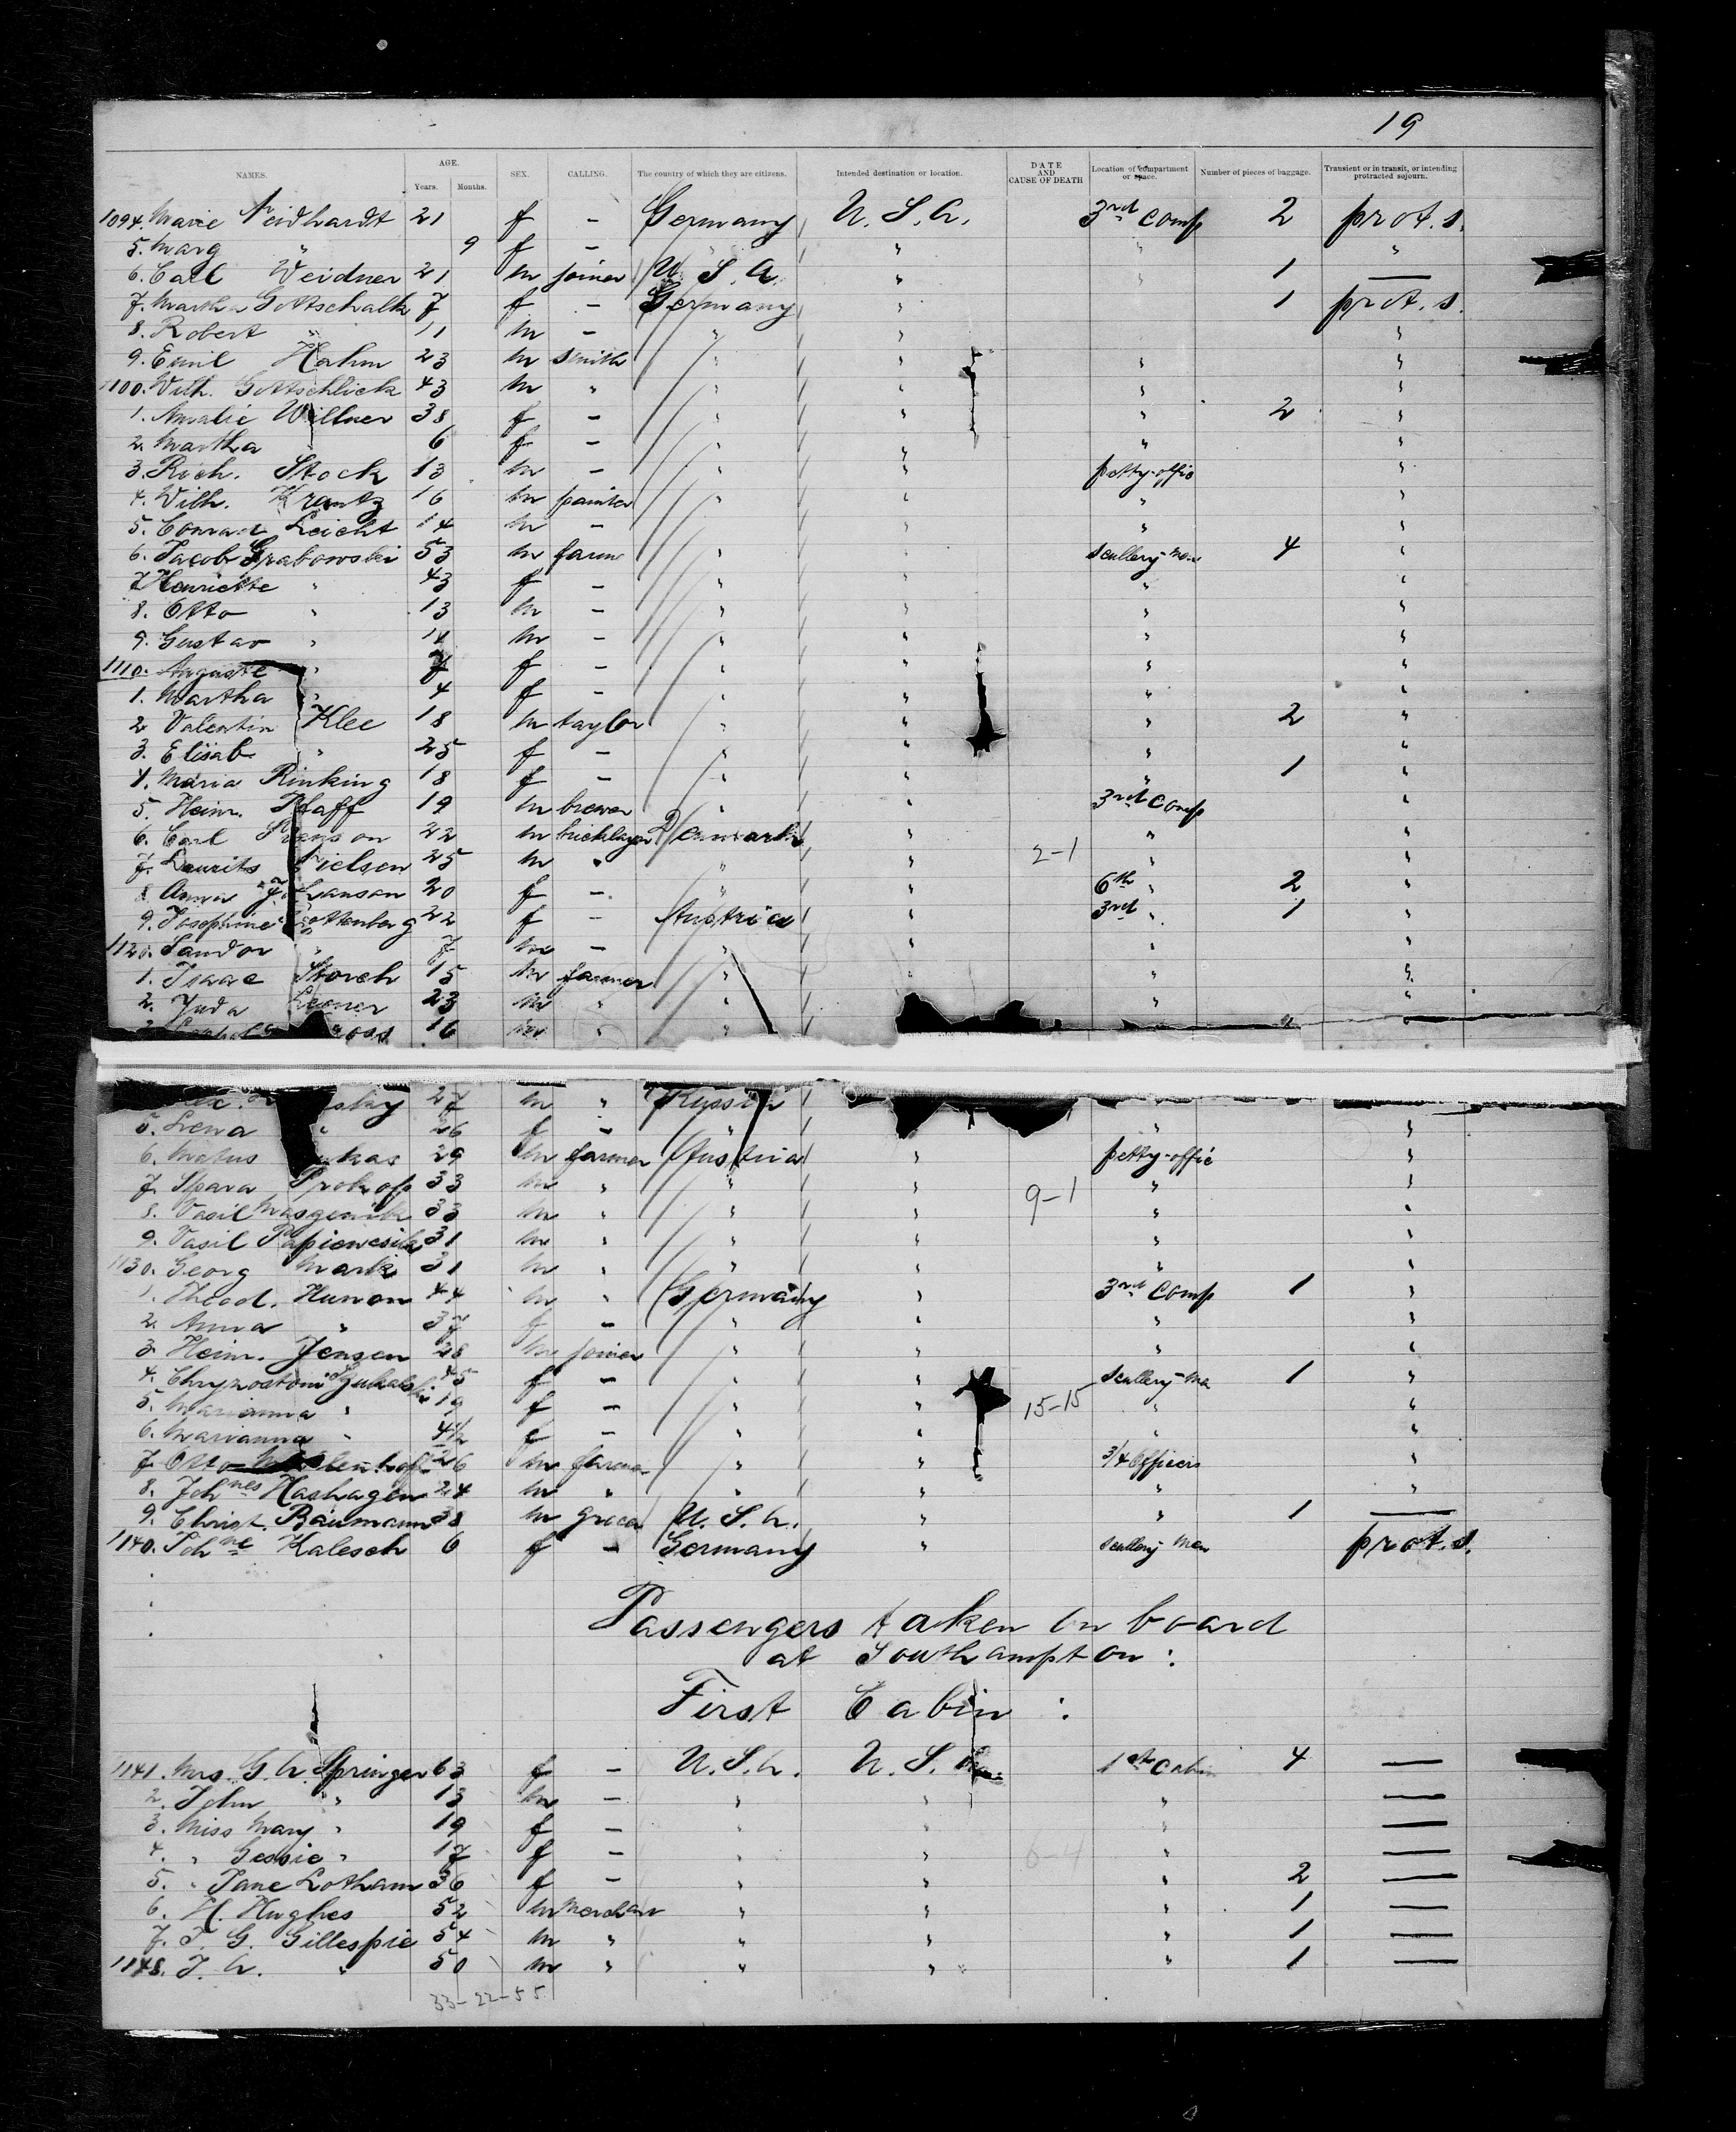 19
NAMES. AGE. Years. Months. SEX. CALLING. The country of which they are citizens. Intended destination or location. DATE AND CAUSE OF DEATH Location of compartment or space. Number of pieces of baggage. Transient or in transit, or intending protracted sojourn.
1094. Marie Neidhardt 21 f - Germany U. S. A. 3rd Comp 2 prot. s.
5. Marg " 9 f - " " " "
6. Carl Weidner 21 m joiner U. S. A. " " 1 —
7. Martha Gottschalk 7 f - Germany " 1 prot. s.
8. Robert " 11 m - " " "
9. Emil Hahm 23 m smith " " " "
1100. Wilh. Gottschlick 43 m " " " " "
1. Amalie Wellner 38 f - " " " 2 "
2. Martha 6 f - " " " "
3. Rich. Stock 13 m - " " petty-offic "
4. Wilh. Krantz 16 m painter " " " "
5. Conrad Leicht 14 m - " " " "
6. Jacob Grabowski 53 m farm " " scullery-men 4 "
7. Henriette " 43 f - " " " "
8. Otto " 13 m - " " " "
9. Gustav " 11 m - " " " "
1110. Auguste " 7 f - " " " "
1. Martha " 4 f - " " " "
2. Valentin Klee 18 m taylor " " " 2 "
3. Elisab. " 25 f - " " " "
4. Maria Rinking 18 f - " " " 1 "
5. Heinr. Pfaff 19 m brewer " " 3rd Comp "
6. Carl 22 m bricklayer Denmark " " "
7. Laurits Nielsen 25 m " " " 2-1 " "
8. Anna 20 f - " " 6th " 2 "
9. Josephine 22 f - Austria " 3rd " 1 "
1120. Sandor " 7 m - " " " "
1. Isaac Storch 15 m farmer " " " "
2. Juda Leaner 23 m " " " "
16 m " "
27 m " Russia
5. Lena " 26 f - " " " "
6. Matus 29 m farmer Austria " petty-offic "
7. Spara Prokop 33 m " " " 9-1 " "
8. Vasil 33 m " " " " "
9. Vasil 31 m " " " " "
1130. Georg Mark 31 m " " " " "
1. Theod. Hunon 44 m " Germany " 3rd Comp 1 "
2. Anna " 37 f - " " " "
3. Heinr. Jensen 28 m joiner " " " "
4. 45 f - " " scullery-me 1 "
5. Marianna " 19 f - " " 15-15 " "
6. Marianna " 4½ f - " " " "
7. Otto 26 m farmer " " 3/4 Officers "
8. Johnnes Hashagen 24 m " " " " "
9. Christ. Baumann 38 m grocer U. S. A. " " 1 —
1140. Johne Kalesch 6 f - Germany " scullery men prot. s.
Passengers taken on board
at Southampton :
First Cabin :
1141. Mrs. G. A. Springer 63 f - U. S. A. U. S. A. 1st Cabin 4 —
2. John " 13 m - " " " —
3. Miss Mary " 19 f - " " " —
4. " Gessie " 17 f - " " 6-4 " —
5. " Jane Lotham 36 f - " " " 2 —
6. H. Hughes 52 m merchant " " " 1 —
7. T. G. Gillespie 54 m " " " " 1 —
1148. T. A. " 50 m " " " " 1 —
33-22-55